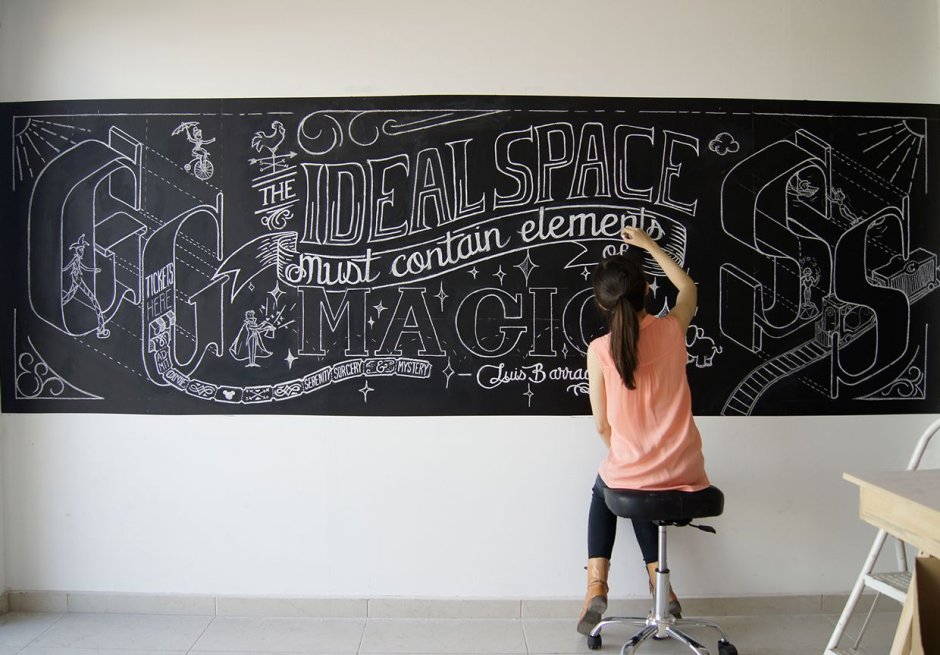 THE
IDEAL SPACE
must contain elements
of
MAGIC
Luis Barra
TICKETS
HERE
SERENITY SORCERY & MYSTERY